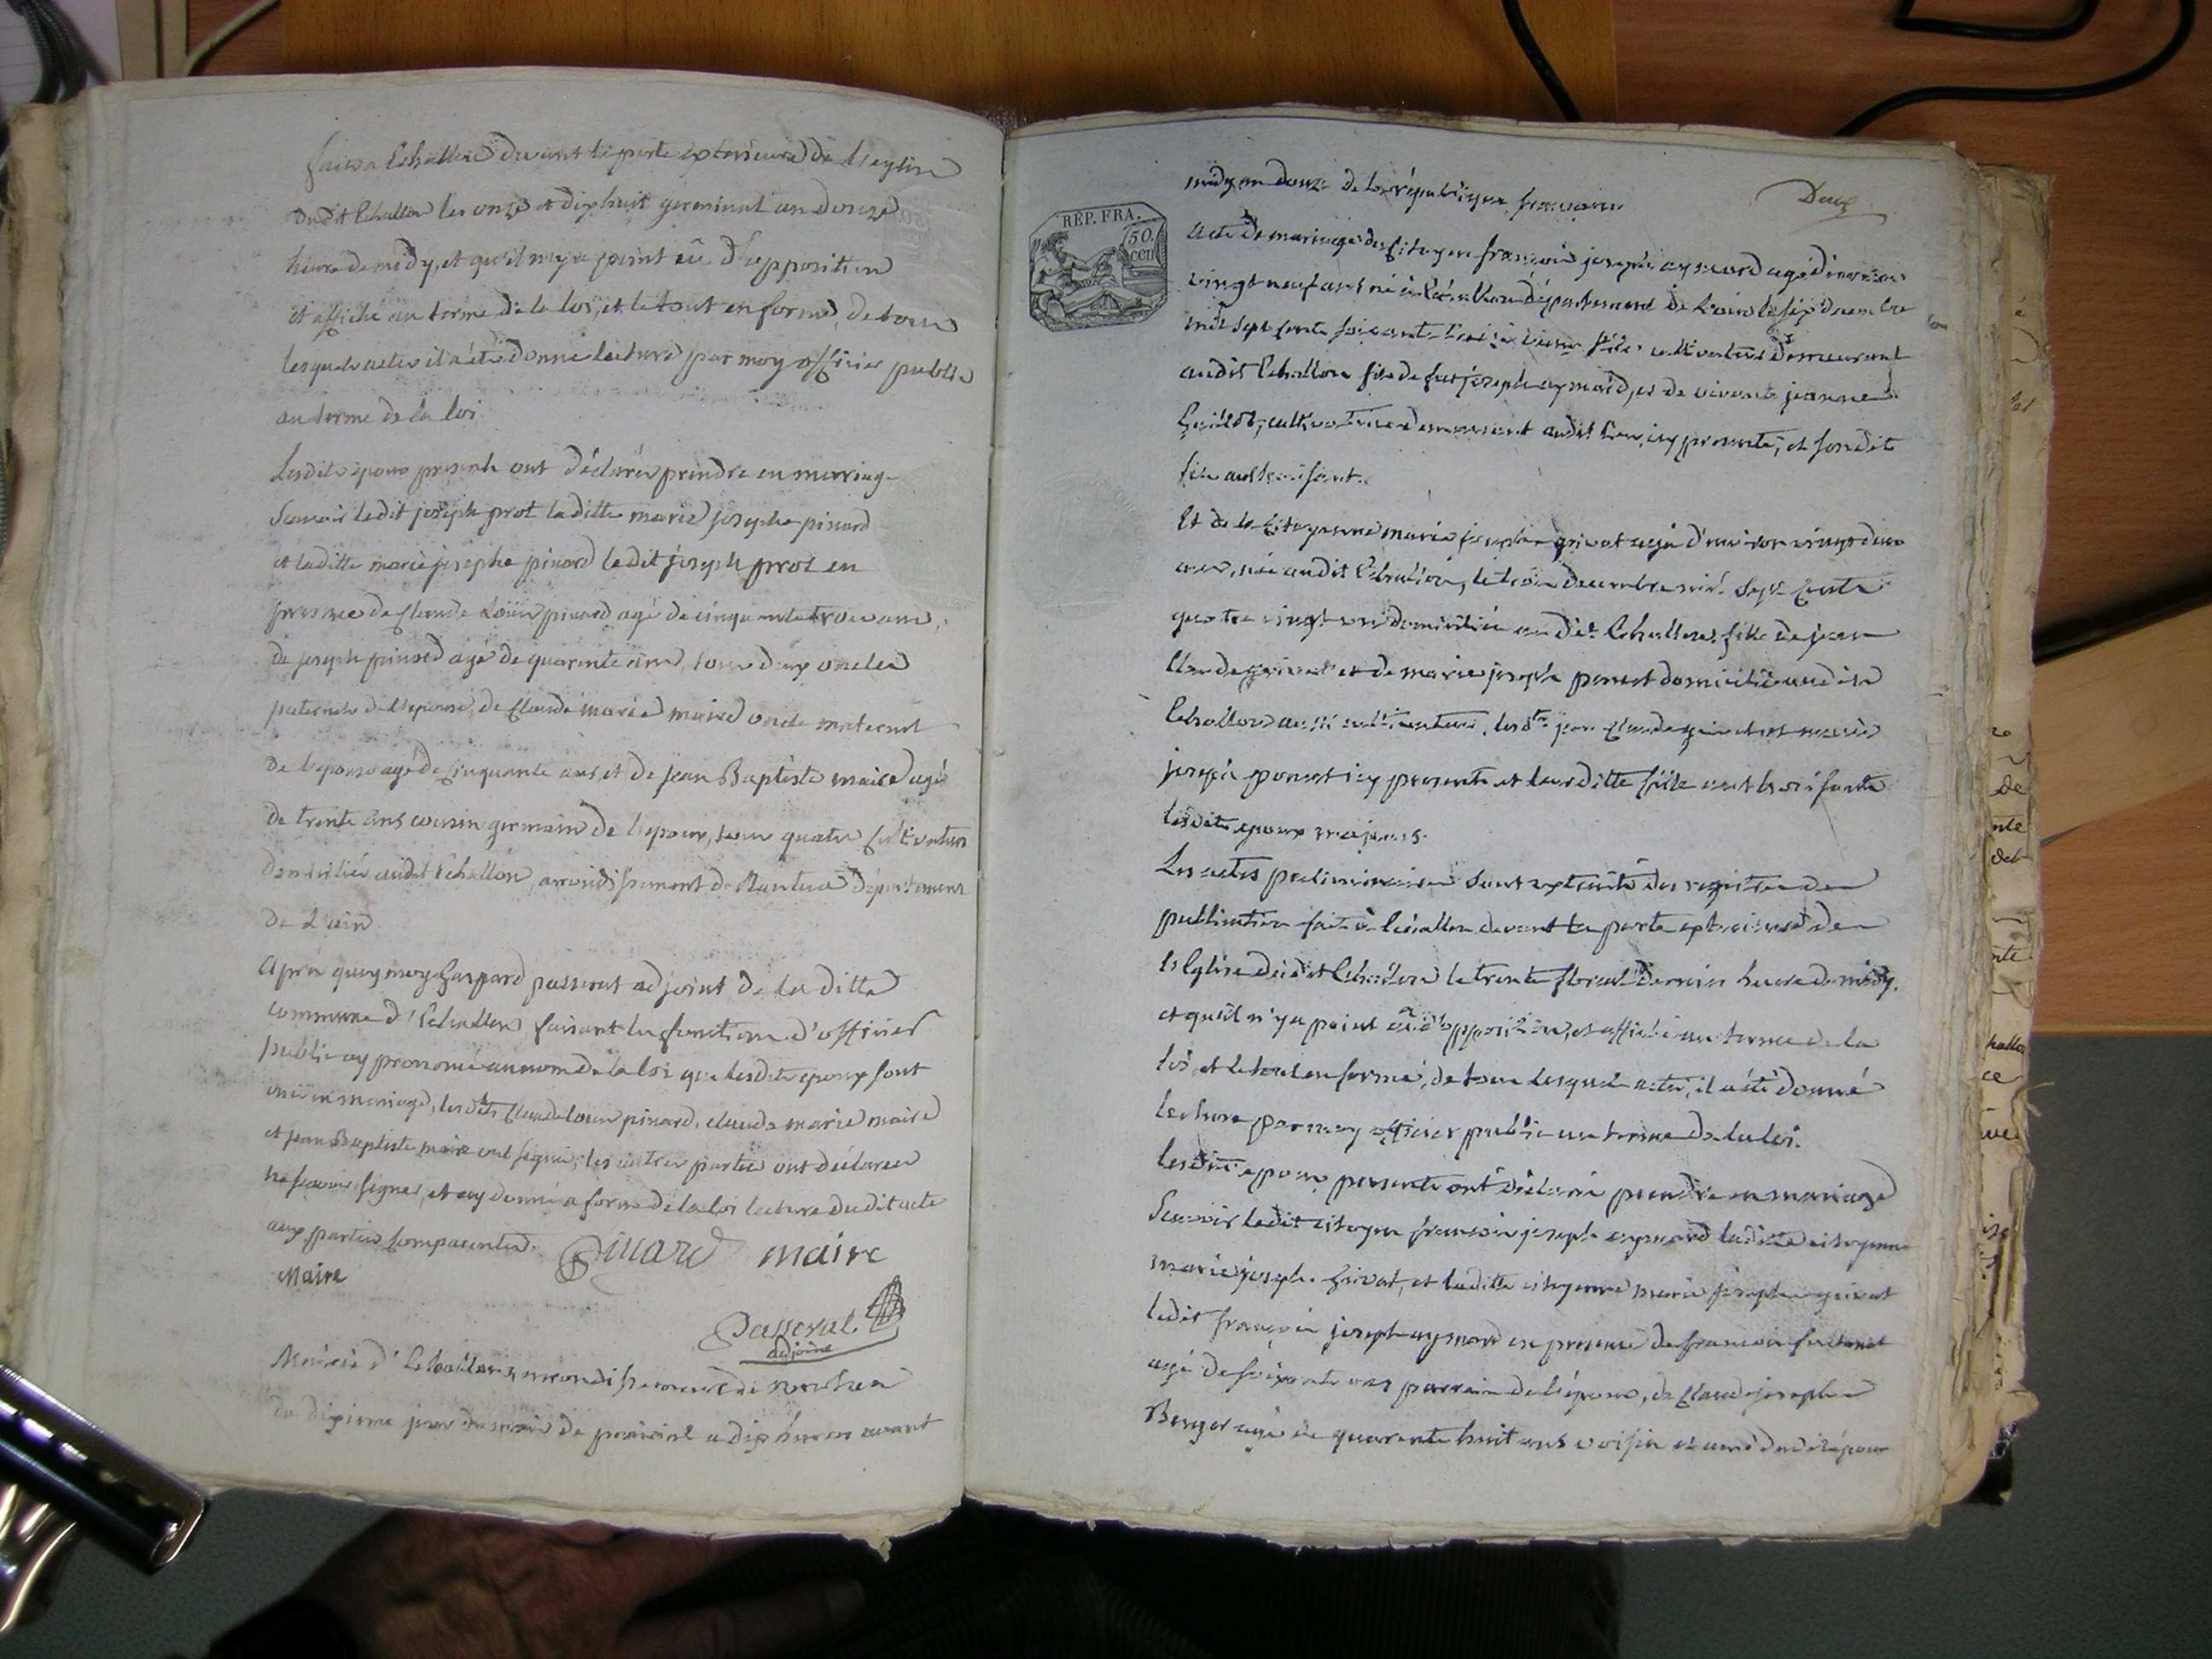 faites a Echallon devant la porte exterieure de l'eglise
dudit Echallon les onze et dix huit germinal an douze
heure de midy, et qu'il n'y a point eû d'opposition
et affiché au terme de la loi, et le tout en forme, de tous
lesquels actes il a été donné lecture par moy officier public
au terme de la loi
Lesdits epoux present ont déclarés prendre en marriage
Scavoir ledit joseph prost laditte marie josephe pinard
et laditte marie josephe pinard ledit joseph prost en
presence de Claude Loüis pinard agé de cinquante trois ans,
de joseph pinard agé de quarente ans, tous deux oncles
paternels de l'epouse, de Claude marie maire oncle maternel
de l'epoux agé de Cinquante ans, et de jean Baptiste maire agé
de trente ans cousin germain de l'epoux, tous quatre Cultivateurs
domiciliés audit Echallon, arrondissement de Nantua département
de L'ain
Après quoy moy Gaspard passerat adjoint de la ditte
commune d'Echallon faisant les fonctions d'officier
public ay prononcé au nom de la loi que lesdits epoux sont
unis en mariage, lesdits Claude louis pinard, claude marie maire
et jean Baptiste maire ont signé, les autres parties ont déclarés
ne scavoir signer, et ay donné a forme de la loi lecture dudit acte
aux parties comparentes.
Pinard maire
Maire
Passerat
adjoint
Mairie d'Echallon, arrondissement de Nantua
du dixieme jour du mois de prairial a dix heures avant
midy an douze de la république française
Deux
RÉP. FRA.
50.
cen
Acte de mariage du Citoyen françois joseph aymard agé d'environ
vingt neuf ans né à Echallon département de L'ain le six decembre
mil sept cents soixante cultivateur demeurant
audit Echallon fils de fut joseph aymard, et de vivante jeanne
cultivatrice demeurant audit lieu, icy presente, et sondit
fils authorisant.
Et de la Citoyenne marie josephe grivat agée d'environ vingt deux
ans, née audit Echallon, le trois decembre mil sept cents
quatre vingt un domiciliée audit Echallon, fille de jean
Claude grivat et de marie josephe ponset domiciliés audit
Echallon aussi cultivateurs, lesdts jean Claude grivat et marie
josephe ponset icy presents et leur ditte fille authorisants
lesdits epoux majeurs.
Les actes preliminaires sont extraits des registres de
publication faite à Echallon devant la porte exterieure de
l'Eglise dudit Echallon le trente floreal dernier heure de midy.
et qu'il n'y a point eû d'opposition, et affiché au terme de la
loi, et le tout en forme, de tous lesquels actes, il a été donné
lecture par moy officier public au terme de la loi.
lesdits epoux presents ont déclaré prendre en mariage
Scavoir ledit citoyen francois joseph aymard laditte citoyenne
marie joseph grivat, et laditte citoyenne marie josephe grivat
ledit françois joseph aymard en presence de francois
agé de soixante ans parrain de l'époux, de Claude joseph
Berger agé de quarente huit ans voisin et ami dudit époux